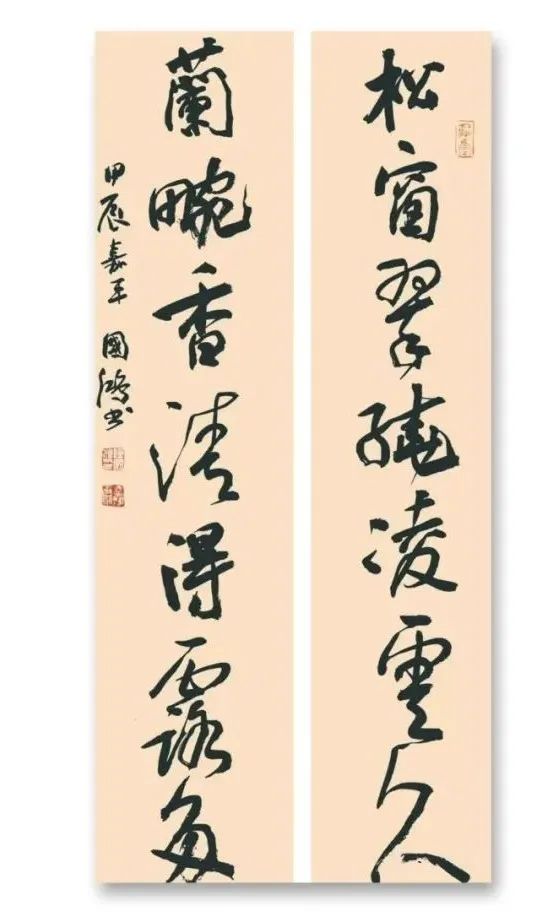 松窗翠繞凌雲久
蘭畹香清得露多
甲辰嘉平 國鴻書